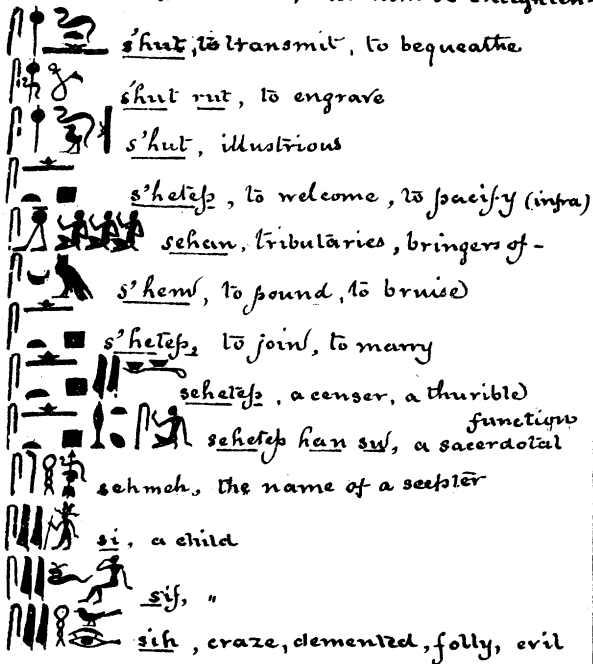 s'hut, to transmit, to bequeathe
s'hut rut, to engrave
s'hut, illustrious
s'hetep, to welcome, to pacify (infra)
sehan, tributaries, bringers of -
s'hem, to pound, to bruise
s'hetep, to join, to marry
sehetep, a censer, a thurible
sehetep han su, a sacerdotal function
sehmeh, the name of a scepter
si, a child
sif, "
sih, craze, demented, folly, evil